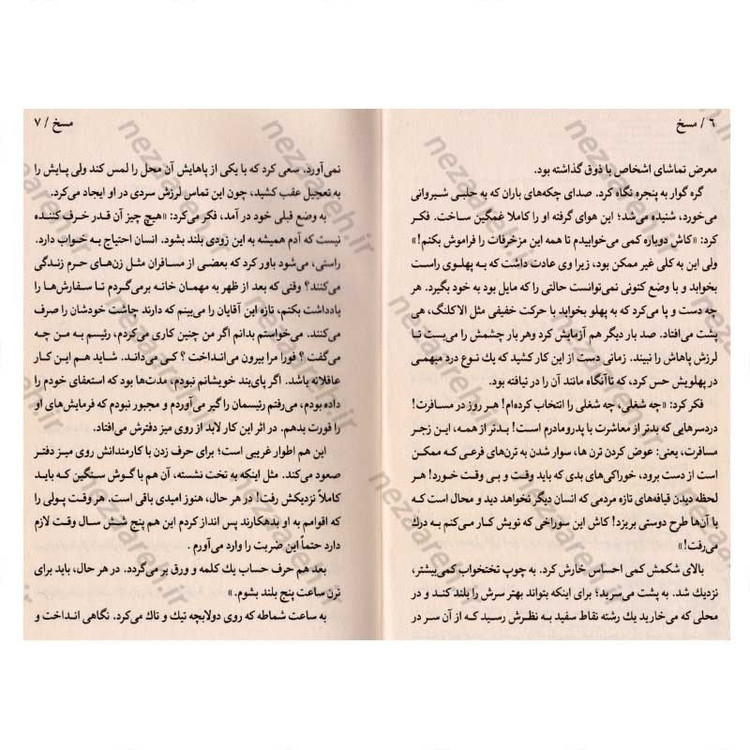 ٦ / مسخ
معرض تماشای اشخاص با ذوق گذاشته بود.
گره گوار به پنجره نگاه کرد. صدای چکه‌های باران که به حلبی شیروانی
می‌خورد، شنیده می‌شد؛ این هوای گرفته او را کاملا غمگین ساخت. فکر
کرد: «کاش دوباره کمی می‌خوابیدم تا همه این مزخرفات را فراموش بکنم!»
ولی این به کلی غیر ممکن بود، زیرا وی عادت داشت که به پهلوی راست
بخوابد و با وضع کنونی نمی‌توانست حالتی را که مایل بود به خود بگیرد. هر
چه دست و پا می‌کرد که به پهلو بخوابد با حرکت خفیفی مثل الاکلنگ، هی
پشت می‌افتاد. صد بار دیگر هم آزمایش کرد وهر بار چشمش را می‌بست تا
لرزش پاهاش را نبیند. زمانی دست از این کار کشید که یك نوع درد مبهمی
در پهلویش حس کرد، که تاآنگاه مانند آن را در نیافته بود.
فکر کرد: «چه شغلی، چه شغلی را انتخاب کرده‌ام! هر روز در مسافرت!
دردسرهایی که بدتر از معاشرت با پدرومادرم است! بدتر از همه، این زجر
مسافرت، یعنی: عوض کردن ترن ها، سوار شدن به ترن‌های فرعی که ممکن
است از دست برود، خوراکی‌های بدی که باید وقت و بی وقت خورد! هر
لحظه دیدن قیافه‌های تازه مردمی که انسان دیگر نخواهد دید و محال است که
با آن‌ها طرح دوستی بریزد! کاش این سوراخی که تویش کار می‌کنم به درك
می‌رفت!»
بالای شکمش کمی احساس خارش کرد. به چوب تختخواب کمی‌بیشتر،
نزدیك شد. به پشت می‌سرید؛ برای اینکه بتواند بهتر سرش را بلند کند و در
محلی که می‌خارید یك رشته نقاط سفید به نظرش رسید که از آن سر در
مسخ / ۷
نمی‌آورد. سعی کرد که با یکی از پاهایش آن محل را لمس کند ولی پایش را
به تعجیل عقب کشید، چون این تماس لرزش سردی در او ایجاد می‌کرد.
به وضع قبلی خود در آمد، فکر می‌کرد: «هیچ چیز آن قدر خرف کننده
نیست که آدم همیشه به این زودی بلند بشود. انسان احتیاج به خواب دارد.
راستی، می‌شود باور کرد که بعضی از مسافران مثل زن‌های حرم زندگی
می‌کنند؟ وقتی که بعد از ظهر به مهمان خانه برمی‌گردم تا سفارش‌ها را
یادداشت بکنم، تازه این آقایان را می‌بینم که دارند چاشت خودشان را صرف
می‌کنند. می‌خواستم بدانم اگر من چنین کاری می‌کردم، رئیسم به من چه
می‌گفت ؟ فورا مرا بیرون می‌انداخت ؟ کی می داند. شاید هم این کار
عاقلانه باشد. اگر پای‌بند خویشانم نبودم، مدت‌ها بود که استعفای خودم را
داده بودم، می‌رفتم رئیسمان را گیر می آوردم و مجبور نبودم که فرمایش‌های او
را قورت بدهم. در اثر این کار لابد از روی میز دفترش می‌افتاد.
این هم اطوار غریبی است؛ برای حرف زدن با کارمندانش روی میز دفتر
صعود می‌کند. مثل اینکه به تخت نشسته، آن هم با گوش سنگین که باید
کاملاً نزدیکش رفت! در هر حال، هنوز امیدی باقی است. هر وقت پولی را
که اقوامم به او بدهکارند پس انداز کردم این هم پنج شش سال وقت لازم
دارد حتماً این ضربت را وارد می‌آورم .
بعد هم حرف حساب یك کلمه و ورق بر می‌گردد. در هر حال، باید برای
ترن ساعت پنج بلند بشوم.»
به ساعت شماطه که روی دولابچه تیك و تاك می‌کرد. نگاهی انداخت و
nezaareh.ir